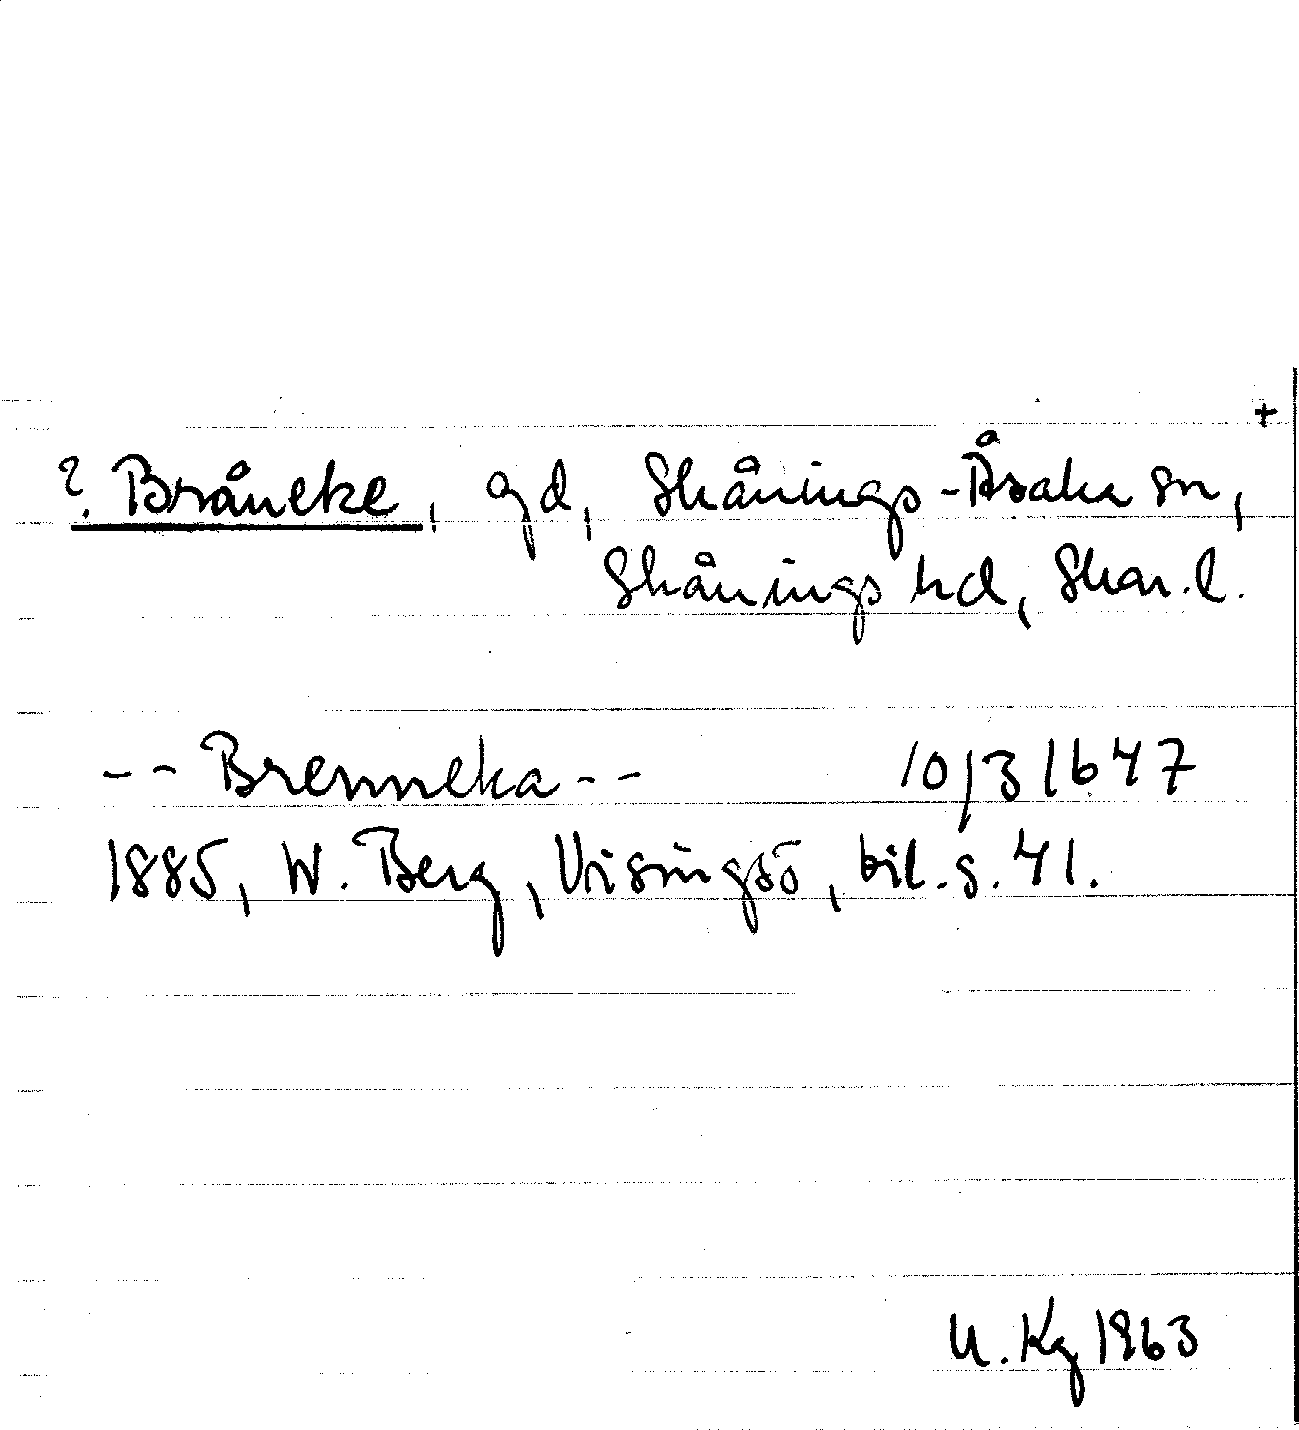 +
? Bråneke, gd, Skånings-Åsaka sn,
Skånings hd, Skar. l.
-- Brenneka -- 10/3 1647
1885, W. Berg, Visingsö, bil. s. 41.
U. Kg 1963